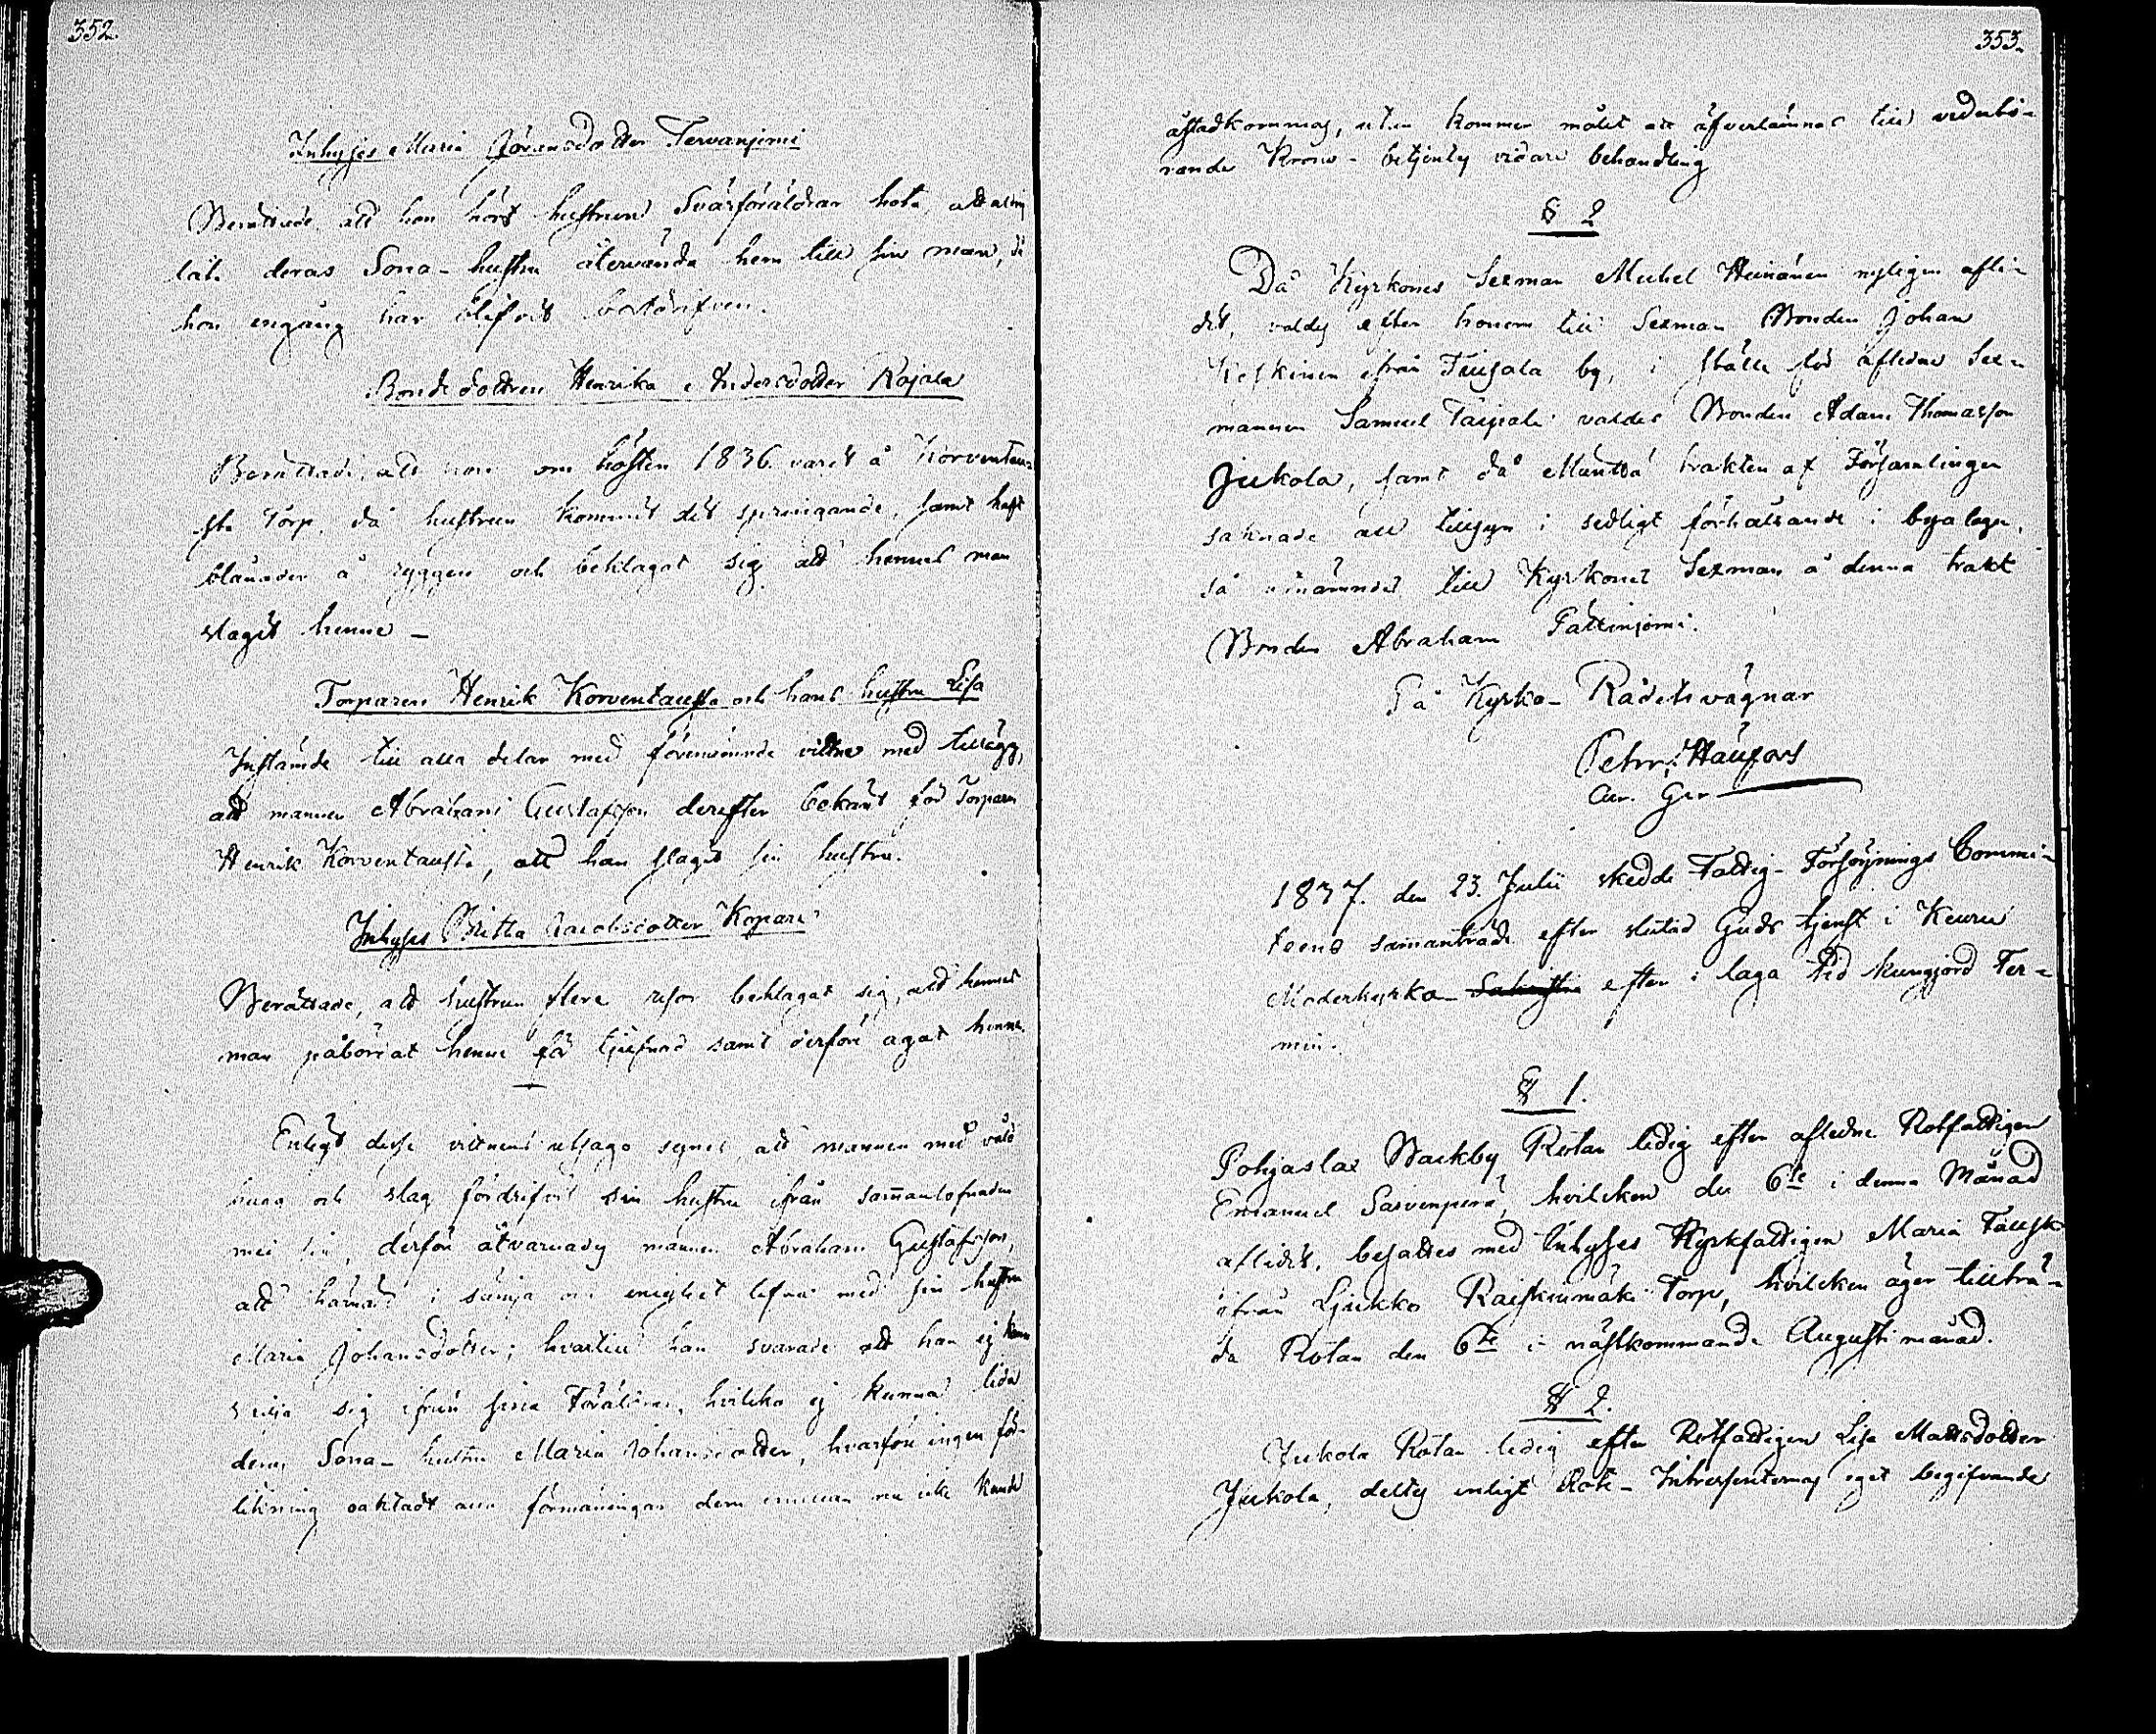 352.
Inhyses Maria Göransdotter Tervanjemi
Berättade, att hon hört hustruns Svärföräldrar hota, att aldrig
låta deras Sona-hustru återvända hem till sin man, då
hon engång har blifvit bortdrifven.
Bondedottren Henrika Andersdotter Rajala
Berättade, att hon om hösten 1836 varit å Korventau-
sta Torp, då hustrun kommit dit springande, samt haft
blånader å ryggen och beklagat sig att hennes man
slagit henne –
Torparen Henrik Korventausta och hans hustru Lisa
Instämde till alla delar med förenämnde vittne med tillägg,
att mannen Abraham Gustafsson derefter bekänt för Torparn
Henrik Korventausta, att han slagit sin hustru.
Inhyses Britta Jacobsdotter Kopari
Berättade, att hustrun flere resor beklagat sig, att hennes
man påbördat henne för tjufnad samt derföre agat henne.
Enligt desse vittnens utsago synes, att mannen med våld
hugg och slag fördrifvit sin hustru ifrån sammanlefnaden
med sin, derföre åtvarnades mannen Abraham Gustafsson,
att härnäst i sämja och enighet lefva med sin hustru
Maria Johansdotter; hvartill han svarade att han ej kan
skilja sig ifrån sina Föräldrar, hvilka ej kunna lida
deras Sona-hustru Maria Johansdotter, hvarföre ingen för-
likning oaktadt alla förmaningar dem emellan nu icke kunde
353.
åstadkommas, utan kommer målet att öfverlämnas till vederbö-
rande Krono-betjentes vidare behandling
§ 2
Då Kyrkones Sexman Michel Heinänen nyligen afli-
dit, valdes efter honom till Sexman Bonden Johan
Keskinen ifrån Tiusala by, i stället för afledne Sex-
mannen Samuel Taipale valdes Bonden Adam Thomasson
Jukola, samt då Mänttä trakten af Församlingen
saknade all tillsyn i sedligt förhållande i byalagen,
så utnämndes till Kyrkones Sexman å denna trakt
Bonden Abraham Pättiniemi.
På Kyrko-Rådets vägnar
Petr: Häufors
Cur. Ger
1837. den 23. Julii skedde Fattig-Försörjnings Commi-
teens samanträde efter slutad Guds tjenst i Keuru
Moderkyrka Sakristia efter i laga tid kungjord Ter-
min.
§ 1.
Pohjaslax Backby Rotan ledig efter afledne Rotfattigen
Emanuel Sarvenperä, hvilcken den 6te i denna Månad
aflidit, besattes med Inhyses Kyrkfattigen Maria Tausk
ifrån Ljukko Raiskinmäki Torp, hvilcken äger tillträ-
da Rotan den 6te i nästkommande Augusti månad.
§ 2.
Jukola Rotan ledig efter Rotfattigen Lisa Mattsdotter
Jukola, deltes enligt Rote-Intressenternas eget begifvande